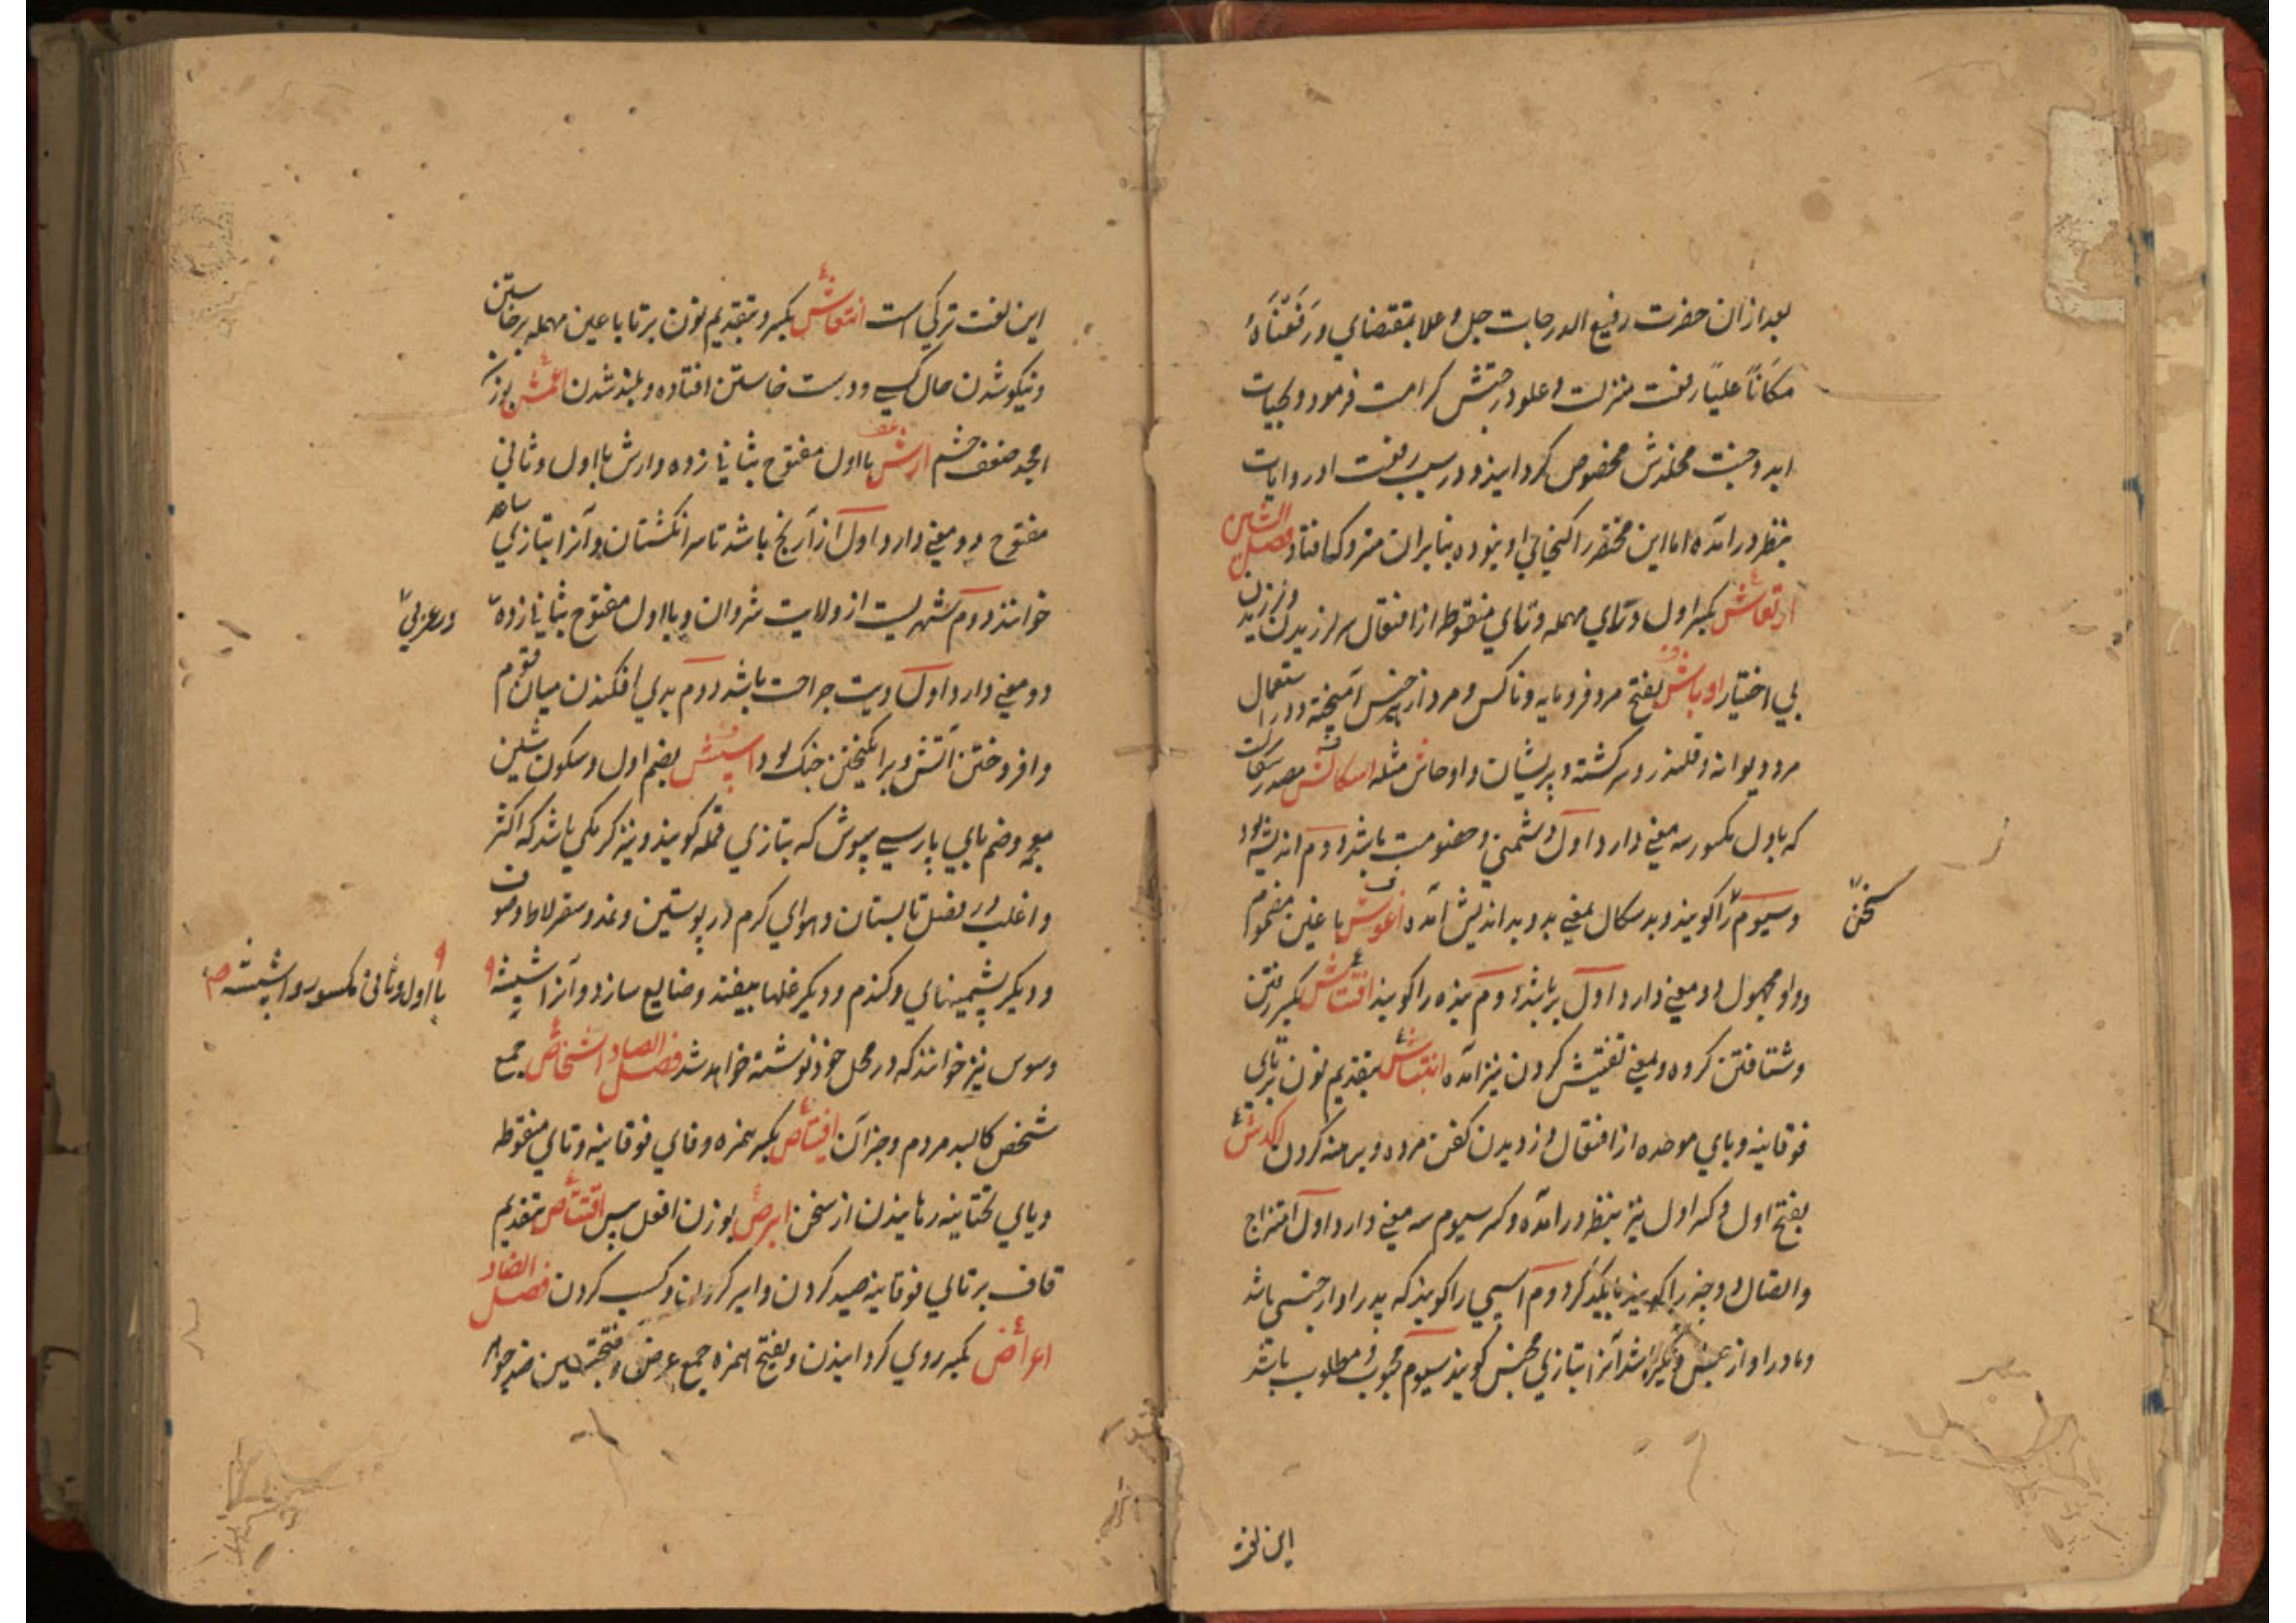 بعد ازان حضرت رفیع الدرجات جل و علا بمقتضای وَرَفَعْنَاهُ
مکَاناً علیاً رفعت منزلت و علو درجتش کرامت فرمود و بحیات
ابد و جنت مخلدش مخصوص کردانیذ و در سبب رفعت او روایات
بنظر درآمده اما این مختصر را کنجایی او نبوده بنابران متروک افتاد فصل الشین
ارتعاش بکسر اول و رای مهمله و تای منقوطه از افتعال لرزیدن
بی اختیار اوباش بفتح مرد فرومایه و ناکس و مرد از هر جنس آمیخته و در استعمال
مرد دیوانه و قلندر و سرکشته و پریشان و اوحاش مثله اسکالش مصدر
که باول مکسور سه معنی دارد اول دشمنی و خصومت باشد دوم اندیشه بود
وسیوم را کویند و بد سکال بمعنی بد و بد اندیش آمده اغوش با غین مضموم
سخن
و واو مجهول دو معنی دارد اول بر باشد دوم بنده را کویند افتاش بکسر رفتن
و شتافتن کروه و بمعنی تفتیش کردن نیز آمده انتباش بتقدیم نون بر تای
فوقانیه و بای موحده از افتعال دزدیدن کفن مرده و برهنه کردن اکدش
بفتح اول و کسر اول نیز بنظر درآمده و کسر سیوم سه معنی دارد اول امتزاج
و اتصال دو چیز را کویند با یکدیکر دوم اسپی را کویند که پدر او از جنسی باشد
و مادر او از جنس دیکر باشد آنرا بتازی مجنس کویند سیوم محبوب و مطلوب باشد
این لغت
این لغت ترکی است انتعاش بکسر و بتقدیم نون بر تا با عین مهمله برخاستن
و نیکو شدن حال کسی و درست خاستن افتاده و بلند شدن اعمش بوزن
امجد ضعف چشم ارش با اول مفتوح بثانی زده و ارش با اول و ثانی
مفتوح دو معنی دارد اول از آرنج باشد تا سر انکشتان و آنرا بتازی ساعد
خوانند دوم شهریست از ولایت شروان و با اول مفتوح بثانی زده
در عربی
دو معنی دارد اول دیت جراحت باشد دوم بدی افکندن میان قوم
و افروختن آتش و برانکیختن جنک بود اسپش بضم اول و سکون شین
معجمه و ضم بای پارسی سپوش که بتازی قمله کویند و نیز کرمکی باشد که اکثر
و اغلب در فصل تابستان و هوای کرم در پوستین و نمد و سقرلاط و صوف
و دیکر پشمینهای و کندم و دیکر غلها بیفتد و ضایع سازد و آنرا اشپشه
با اول و ثانی مکسور و اشپشه
و سوس نیز خوانند که در محل خود نوشته خواهد شد فصل الصاد اشخاص جمع
شخص کالبد مردم و جز آن افتاص بکسر همزه و فای فوقانیه و تای منقوطه
و یای تحتانیه رهانیدن از سخن ابرص بوزن افعل پیس اقتناص بتقدیم
قاف بر تای فوقانیه صید کردن و اسیر کردن و کسب کردن فصل الضاد
اعراض بکسر روی کردانیدن و بفتح همزه جمع عرض و بفتحتین ضد جوهر